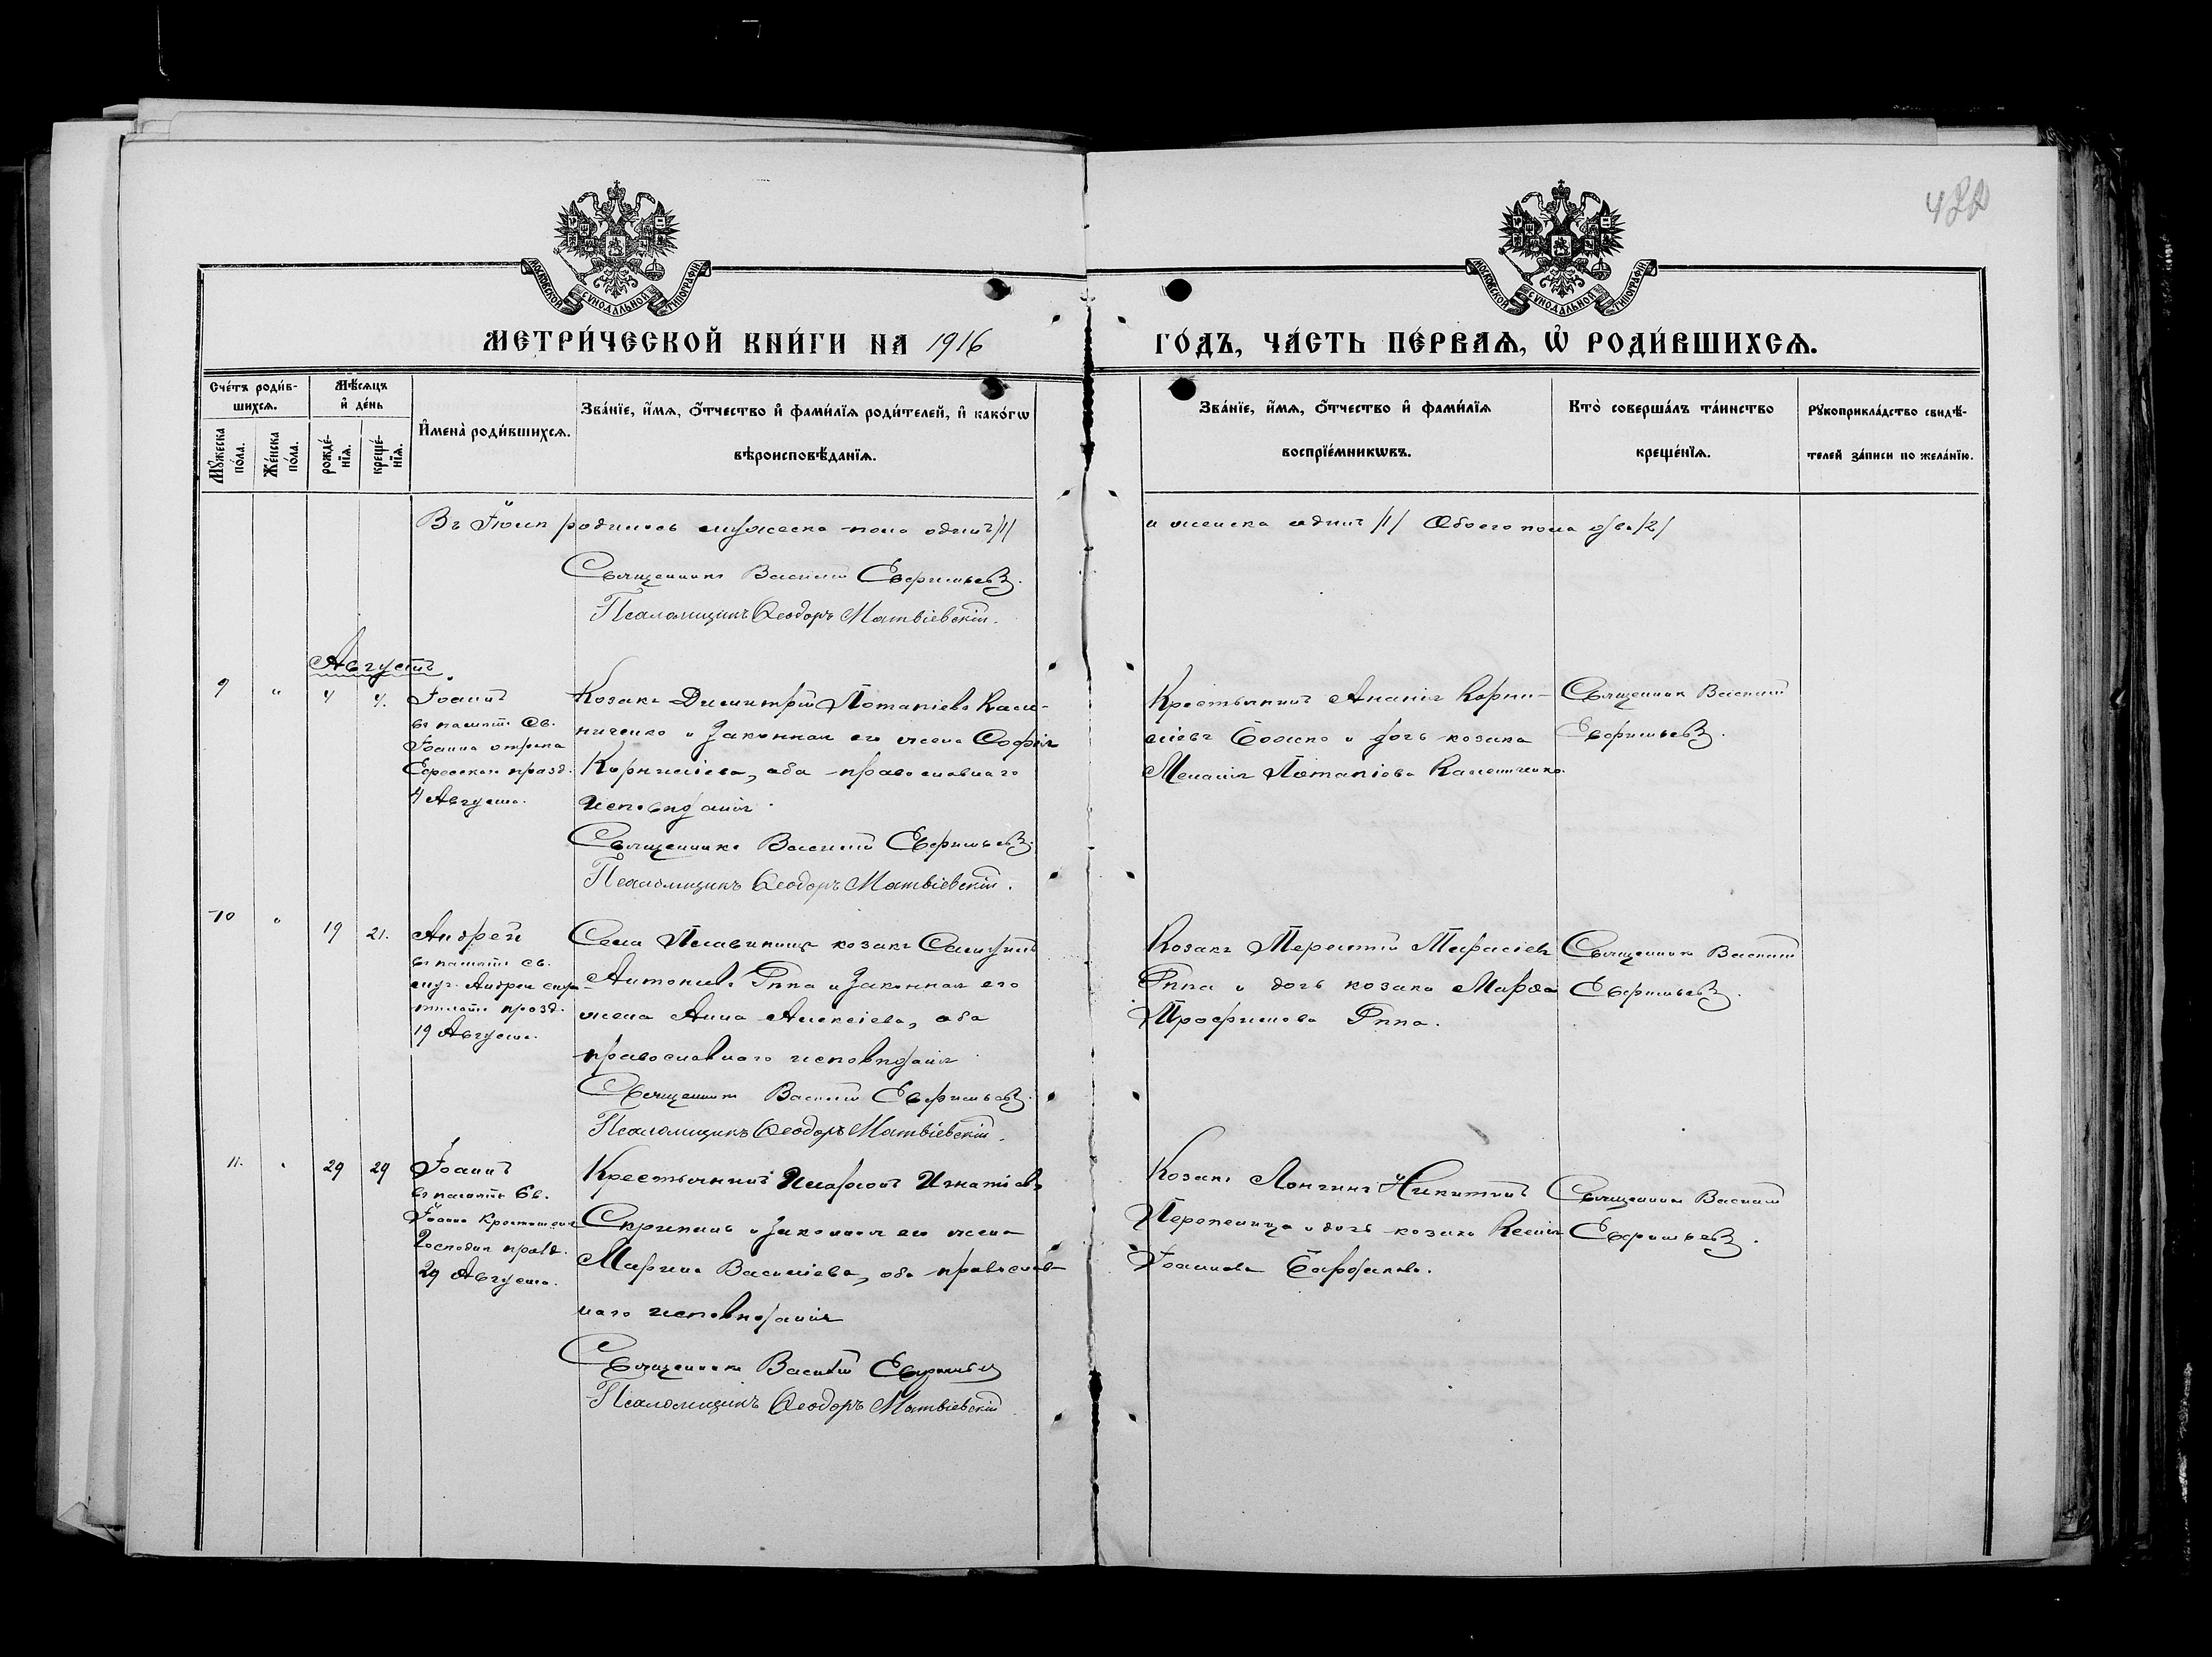 422
МОСКОВСКОЙ СѴНОДАЛЬНОЙ ТИПОГРАФІИ
МОСКОВСКОЙ СѴНОДАЛЬНОЙ ТИПОГРАФІИ
МЕТРИ́ЧЕСКОЙ КНИ́ГИ НА 1916
ГО́ДЪ, ЧА́СТЬ ПЕ́РВАѦ, Ѽ РОДИ́ВШИХСѦ.
Сче́тъ роди́в-
шихсѧ.
Мꙋ́жеска
по́ла.
Же́нска
по́ла.
Мѣ́сѧцъ
и҆ де́нь
рожде́-
нїѧ.
креще́-
нїѧ.
И҆мена̀ роди́вшихсѧ.
Зва́нїе, и҆́мѧ, ѻ҆́тчество и҆ фами́лїѧ роди́телей, и҆ како́гѡ
вѣроисповѣ́данїѧ.
Зва́нїе, и҆́мѧ, ѻ҆́тчество и҆ фами́лїѧ
воспрїе́мникѡвъ.
Кто̀ соверша́лъ та́инство
креще́нїѧ.
Рꙋкоприкла́дство свидѣ́-
телей за́писи по жела́нїю.
Въ Іюлѣ родилось мужеска пола одинъ /1/
и женска одинъ /1/ Обоего пола два /2/
Священникъ Василій Евфимьевъ.
Псаломщикъ Ѳеодоръ Матвіевскій.
Августъ
9 " 4 4.
Іоаннъ
въ память Св.
Іоанна отрока
Ефесскаго празд.
4 Августа.
Козакъ Димитрій Потапіевъ Кали-
ниченко и законная его жена Софія
Корниліева, оба православнаго
исповѣданія.
Священникъ Василій Евфимьевъ.
Псаломщикъ Ѳеодоръ Матвіевскій.
Крестьянинъ Ананія Корни-
ліевъ Божко и дочь козака
Меланія Потапіева Калиниченко.
Священникъ Василій
Евфимьевъ.
10 " 19 21.
Андрей
въ память св.
муч. Андрея стра-
тилата празд.
19 Августа.
Села Плавинища козакъ Самуилъ
Антоніевъ Рѣпа и законная его
жена Анна Алексіева, оба
православнаго исповѣданія
Священникъ Василій Евфимьевъ.
Псаломщикъ Ѳеодоръ Матвіевскій.
Козакъ Терентій Тарасіевъ
Рѣпа и дочь козака Марѳа
Трофимова Рѣпа.
Священникъ Василій
Евфимьевъ.
11. " 29 29
Іоаннъ
въ память Св.
Іоанна Крестителя
Господня празд.
29 Августа.
Крестьянинъ Иларіонъ Игнатіевъ
Скрипиль и законная его жена
Марина Василіева, оба православ-
наго исповѣданія
Священникъ Василій Евфимьевъ
Псаломщикъ Ѳеодоръ Матвіевскій
Козакъ Лонгинъ Никитинъ
Перепелица и дочь козака Ксенія
Іоаннова Бардакова.
Священникъ Василій
Евфимьевъ.